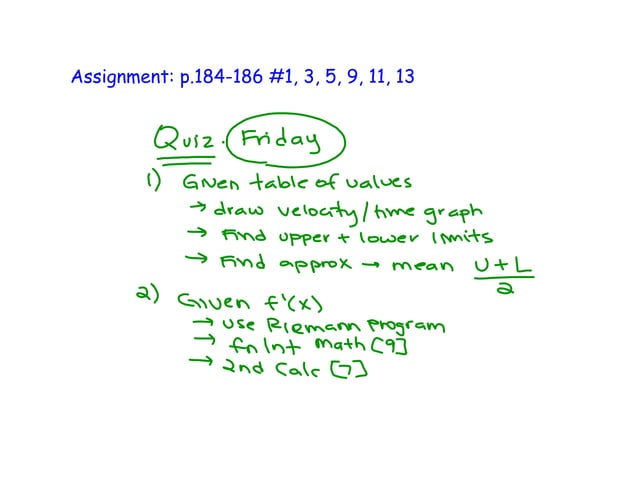 Assignment: p.184-186 #1, 3, 5, 9, 11, 13
Quiz. Friday
1) Given table of values
→ draw velocity/time graph
→ Find upper + lower limits
→ Find approx → mean U+L
2
2) Given f'(x)
→ use Riemann program
→ fnInt math [9]
→ 2nd Calc [7]